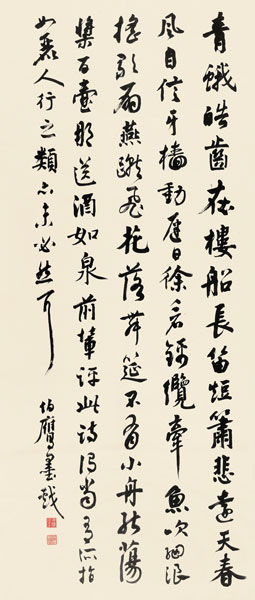 青蛾皓齒在樓船長笛短簫悲遠天春
風自信牙檣動遲日徐看錦纜牽魚吹細浪
搖歌扇燕蹴飛花落舞筵不有小舟能蕩
槳百壺那送酒如泉前輩評此詩有所指
如麗人行之類亦未必然耳
伯鷹墨戲